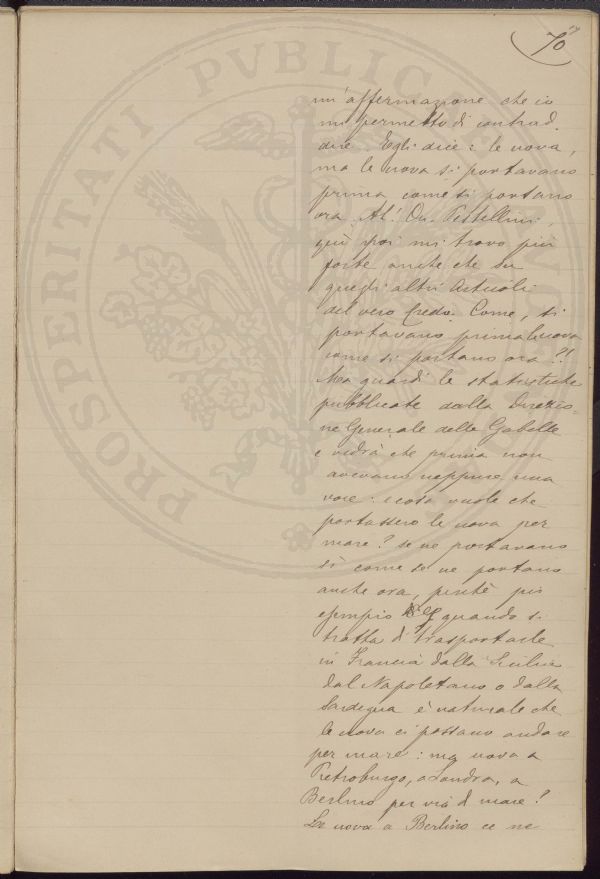 70
PROSPERITATI PVBLICAE
un'affermazione che io
mi permetto di contrad
dire. Egli dice: le uova,
ma le uova si portavano
prima come si portano
ora. Ah! On. Pestellini,
qui poi mi trovo più
forte anche che su
quegli altri Articoli
del vero Credo. Come, si
portavano prima le uova
come si portano ora?!
Ma guardi le statistiche
pubblicate dalla Direzio-
ne Generale delle Gabelle
e vedrà che prima non
avevano neppure una
voce: e cosa vuole che
portassero le uova per
mare? se ne portavano
sì come se ne portano
anche ora, perchè per
esempio quando si
tratta di trasportarle
in Francia dalla Sicilia
dal Napoletano o dalla
Sardegna è naturale che
le uova ci possano andare
per mare: ma uova a
Pietroburgo, a Londra, a
Berlino per via di mare?
Le uova a Berlino ce ne